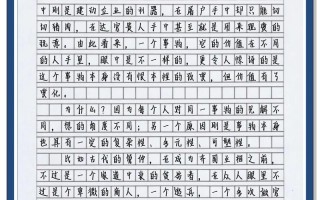 中刚是建功立业的利器，在屠户手中却只能切
切猪肉，在达官贵人手中甚至就是用来观赏的
玩意。由此看来，一个事物，它的价值在不同
的人手里，眼中是不一样的。更令人惊讶的是
这个事物本身没有很本质的改变，价值却有了
变化。
为什么？因为每个人对同一事物的见解不
同，想的角度不同；另一个原因则是事物本身
也具有一定的复杂性、多元性、可塑性。
比如古代的管仲，在成为齐国丞相之前，
不过是一个鲍叔中来的贫穷者，在众人眼里不
过是个卑微的商人，一个逃兵，一个多次做官